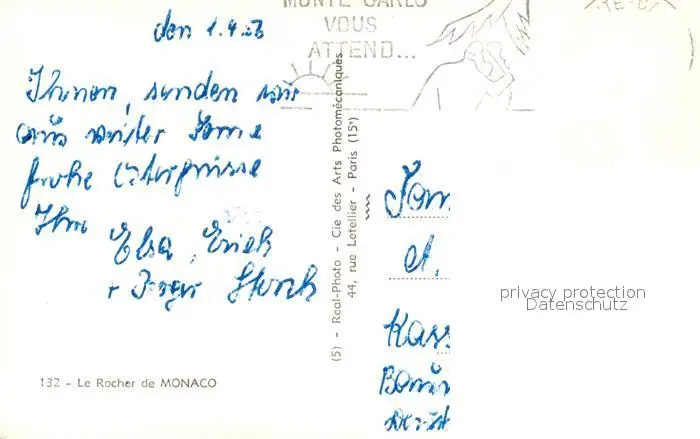 MONTE-CARLO
VOUS
ATTEND...
den 1.4.
Ihnen, senden wir
aus Sonne
frohe Ostergrüsse
Ihre
Elsa, Erich
+ Storch
132 - Le Rocher de MONACO
(5) - Real-Photo - Cie des Arts Photomécaniques
44, rue Letellier - Paris (15°)
Fam
A.
Kass
privacy protection
Datenschutz